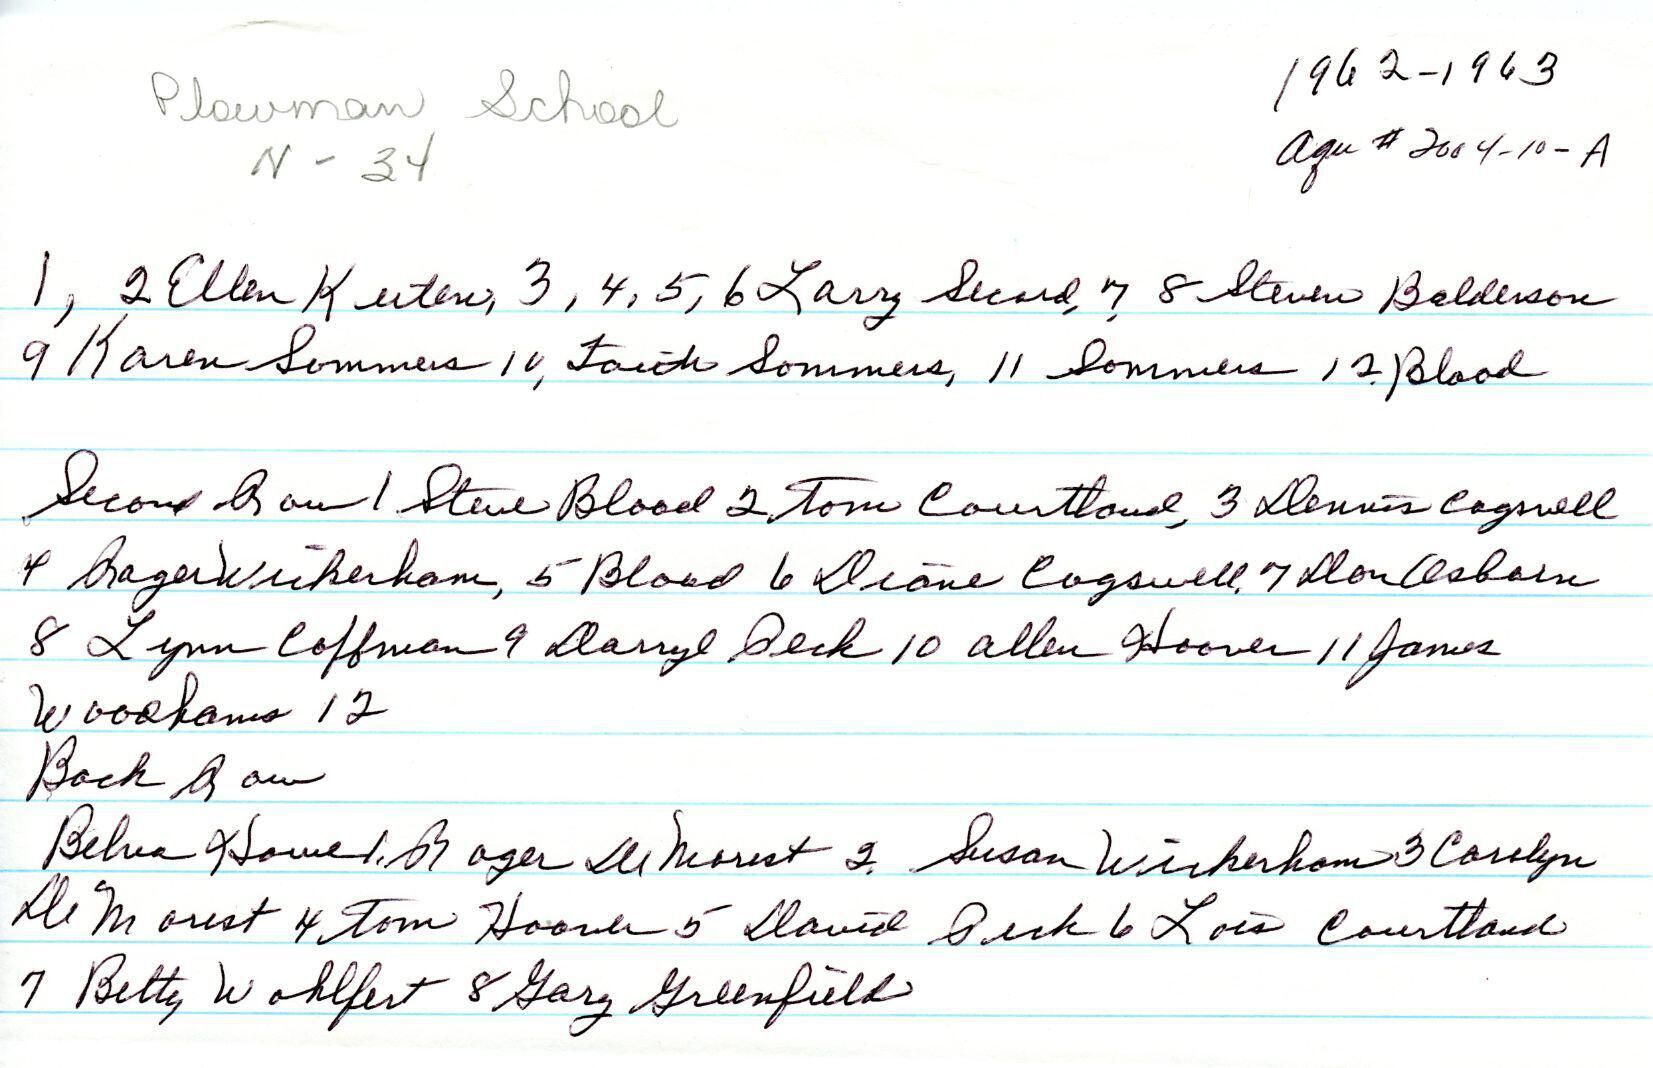 Plowman School
N - 34
1962-1963
Aqu # 2004-10-A
1, 2 Ellen Keiten, 3, 4, 5, 6 Larry Secord, 7, 8 Steven Balderson
9 Karen Sommers 10, Faith Sommers, 11 Sommers 12. Blood
Second Row 1 Steve Blood 2 Tom Courtland, 3 Dennis Cogswell
4 Roger Wickerham, 5 Blood 6 Diane Cogswell, 7 Don Osborn
8 Lynn Coffman 9 Darryl Peck 10 Allen Hoover 11 James
Woodhams 12
Back Row
Belva Howe 1. Roger DeMorest 2. Susan Wickerham 3 Carolyn
DeMorest 4, Tom Hoover 5 David Peck 6 Lois Courtland
7 Betty Wohlfert 8 Gary Greenfield